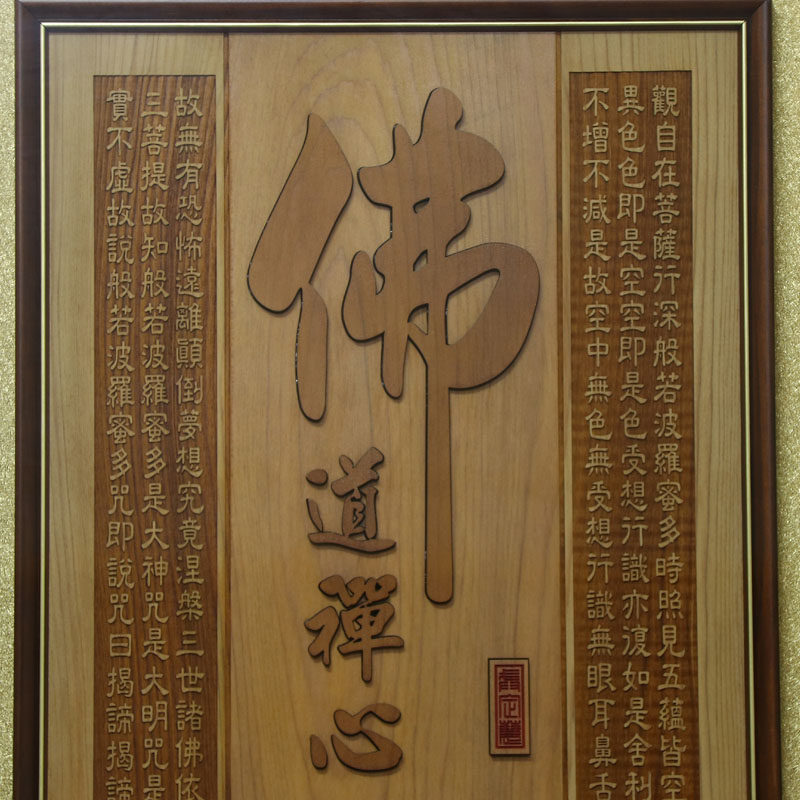 觀自在菩薩行深般若波羅蜜多時照見五蘊皆空
異色色即是空空即是色受想行識亦復如是舍利
不增不減是故空中無色無受想行識無眼耳鼻舌
佛
道禪心
故無有恐怖遠離顛倒夢想究竟涅槃三世諸佛依
三菩提故知般若波羅蜜多是大神咒是大明咒是
實不虛故說般若波羅蜜多咒即說咒曰揭諦揭諦